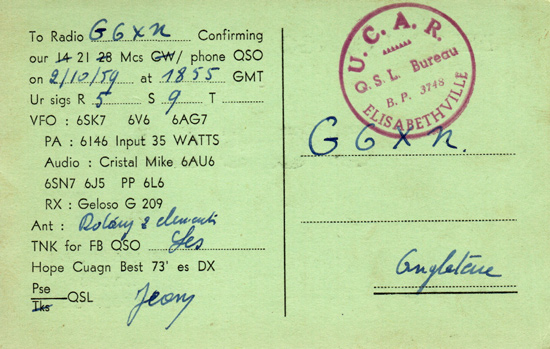 To Radio G6XN Confirming
our 14 21 28 Mcs CW/ phone QSO
on 2/10/59 at 1855 GMT
Ur sigs R 5 S 9 T
VFO : 6SK7 6V6 6AG7
PA : 6146 Input 35 WATTS
Audio : Cristal Mike 6AU6
6SN7 6J5 PP 6L6
RX : Geloso G 209
Ant : Rotary 2 elements
TNK for FB QSO Yes
Hope Cuagn Best 73' es DX
Pse
Tks QSL
U. C. A. R.
Q. S. L. Bureau
B. P. 3748
ELISABETHVILLE
G6XN.
Angleterre